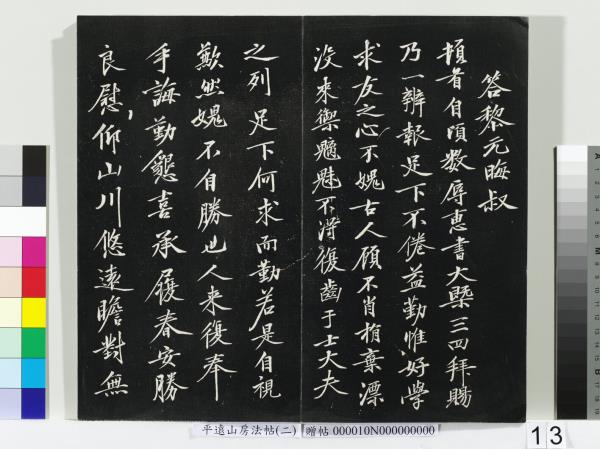 答黎元晦叔
頓首自頃數辱惠書大槩三四拜賜
乃一辨報足下不倦益勤惟好學
求友之心不媿古人顧不肖捐棄漂
沒來禦魑魅不得復齒于士大夫
之列 足下何求而勤若是自視
歉然媿不自勝也人來復奉
手誨勤懇喜承履春安勝
良慰仰山川悠遠瞻對無
平遠山房法帖(二)
贈帖 000010N000000000
13